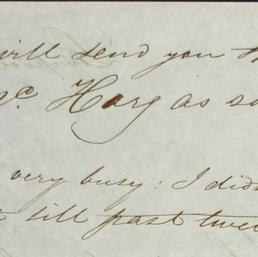 will send you th
gc. Harg as so
very busy: I didn
till past twel